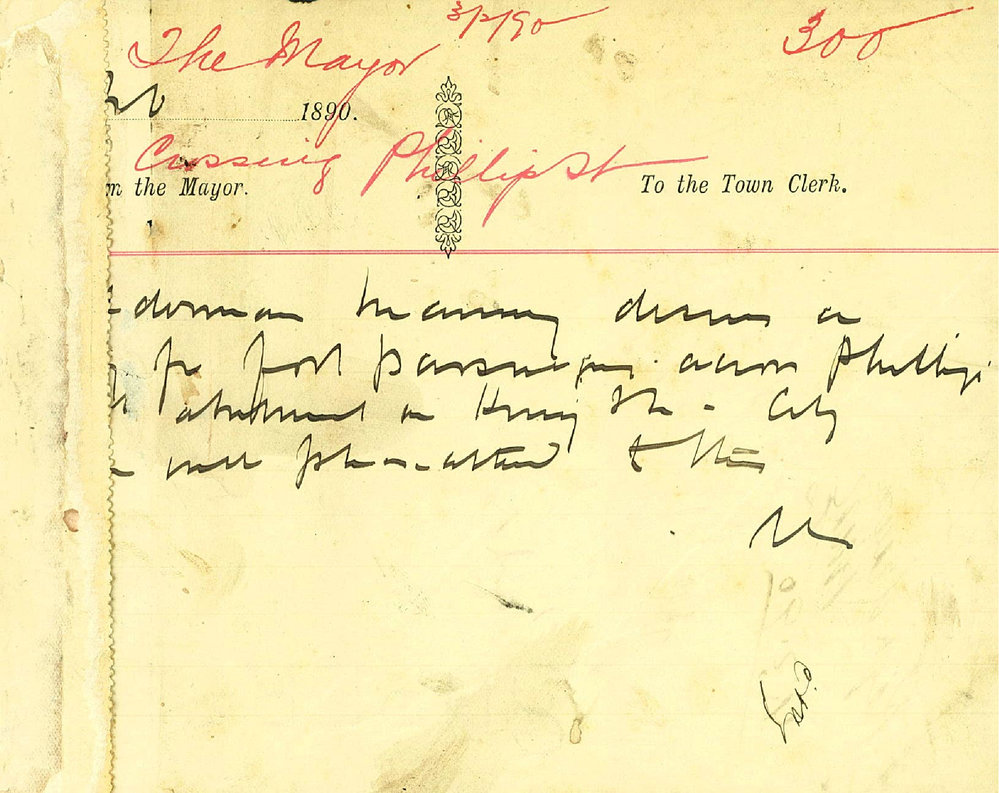 The Mayor 3/2/90 300
1890.
Crossing Phillip St
m the Mayor. To the Town Clerk.
derman Manning desires a
for foot passengers across Phillip
at King St - City
will please attend to this